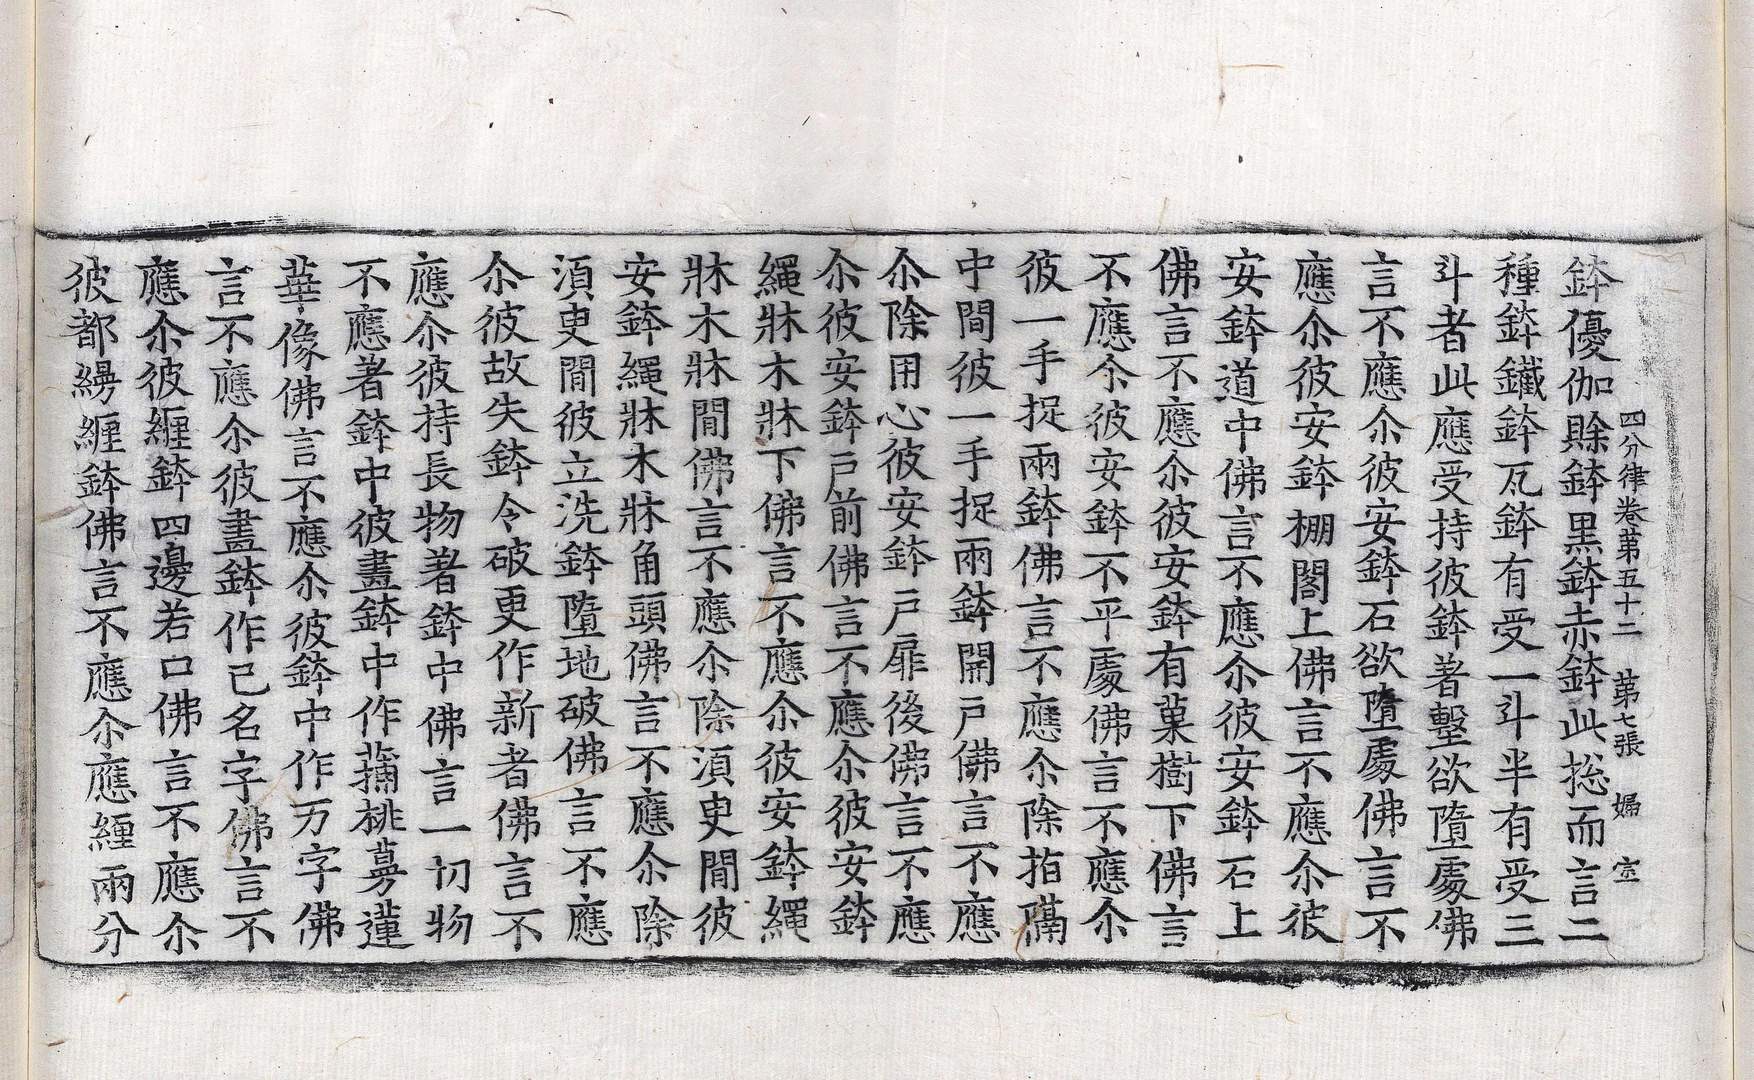 四分律卷第五十二　第七張　婦　宣
鉢優伽賖鉢黑鉢赤鉢此捴而言二
種鉢鐵鉢瓦鉢有受一斗半有受三
斗者此應受持彼鉢著墼欲墮處佛
言不應尒彼安鉢石欲墮處佛言不
應尒彼安鉢棚閣上佛言不應尒彼
安鉢道中佛言不應尒彼安鉢石上
佛言不應尒彼安鉢有菓樹下佛言
不應尒彼安鉢不平處佛言不應尒
彼一手捉兩鉢佛言不應尒除指隔
中間彼一手捉兩鉢開戶佛言不應
尒除用心彼安鉢戶扉後佛言不應
尒彼安鉢戶前佛言不應尒彼安鉢
繩牀木牀下佛言不應尒彼安鉢繩
牀木牀間佛言不應尒除須臾間彼
安鉢繩牀木牀角頭佛言不應尒除
須臾間彼立洗鉢墮地破佛言不應
尒彼故失鉢令破更作新者佛言不
應尒彼持長物著鉢中佛言一切物
不應著鉢中彼畫鉢中作蒱桃蔓蓮
華像佛言不應尒彼鉢中作万字佛
言不應尒彼畫鉢作己名字佛言不
應尒彼纏鉢四邊若口佛言不應尒
彼都縵纏鉢佛言不應尒應纏兩分